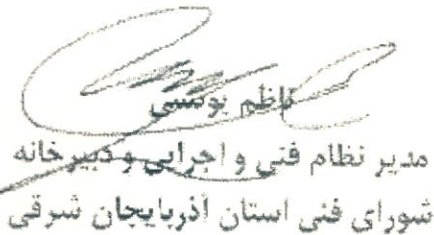 کاظم یونسی
مدیر نظام فنی و اجرایی و دبیرخانه
شورای فنی استان آذربایجان شرقی